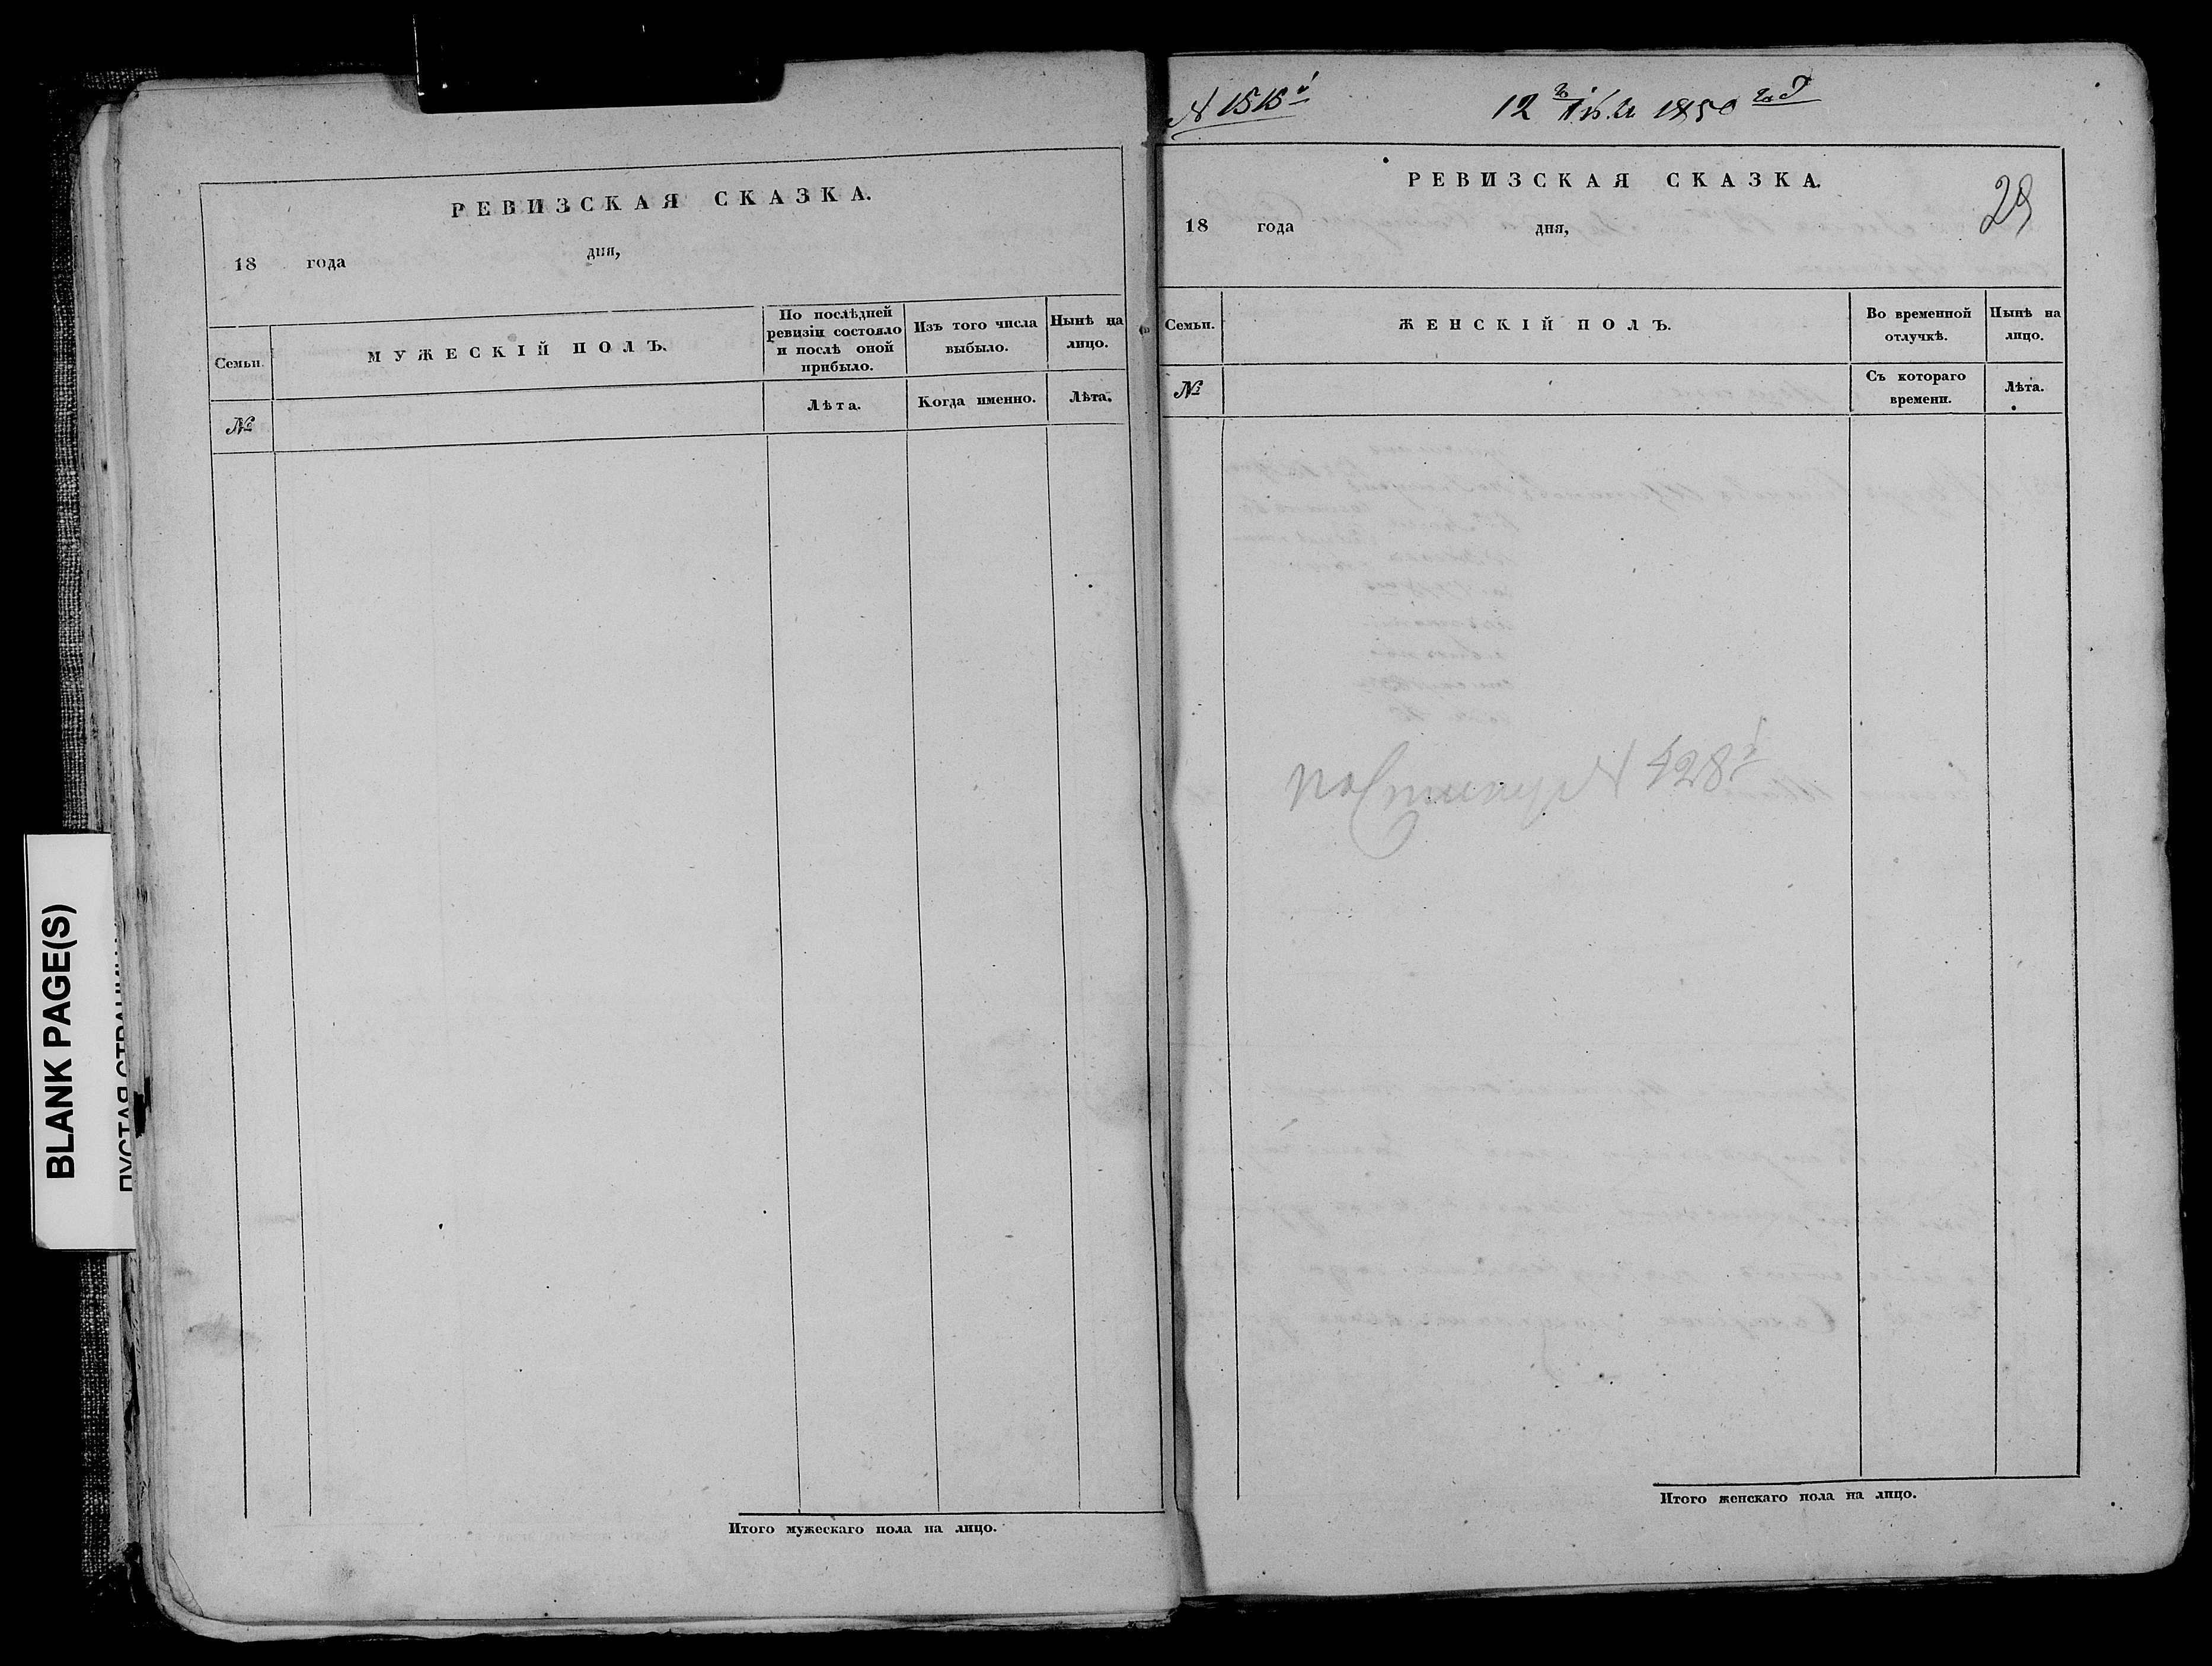 BLANK PAGE(S)
РЕВИЗСКАЯ СКАЗКА.
18 года дня,
Семьи. МУЖЕСКІЙ ПОЛЪ. По послѣдней ревизіи состояло и послѣ оной прибыло. Изъ того числа выбыло. Нынѣ на лицо.
№ Лѣта. Когда именно. Лѣта.
Итого мужескаго пола на лицо.
№ 1515й
12 1850 го Г
РЕВИЗСКАЯ СКАЗКА.
29
18 года дня,
Семьи. ЖЕНСКІЙ ПОЛЪ. Во временной отлучкѣ. Нынѣ на лицо.
№ Съ котораго времени. Лѣта.
по Списку № 428й
Итого женскаго пола на лицо.